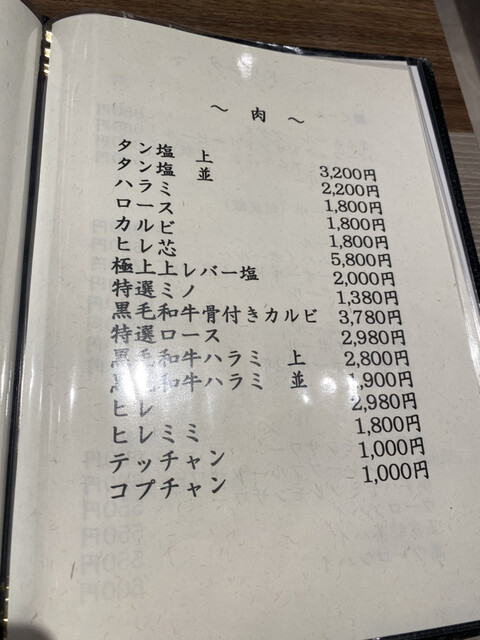 ～ 肉 ～
タン塩 上 3,200円
タン塩 並 2,200円
ハラミ 1,800円
ロース 1,800円
カルビ 1,800円
ヒレ芯 5,800円
極上上レバー塩 2,000円
特選ミノ 1,380円
黒毛和牛骨付きカルビ 3,780円
特選ロース 2,980円
黒毛和牛ハラミ 上 2,800円
黒毛和牛ハラミ 並 1,900円
ヒレ 2,980円
ヒレミミ 1,800円
テッチャン 1,000円
コプチャン 1,000円